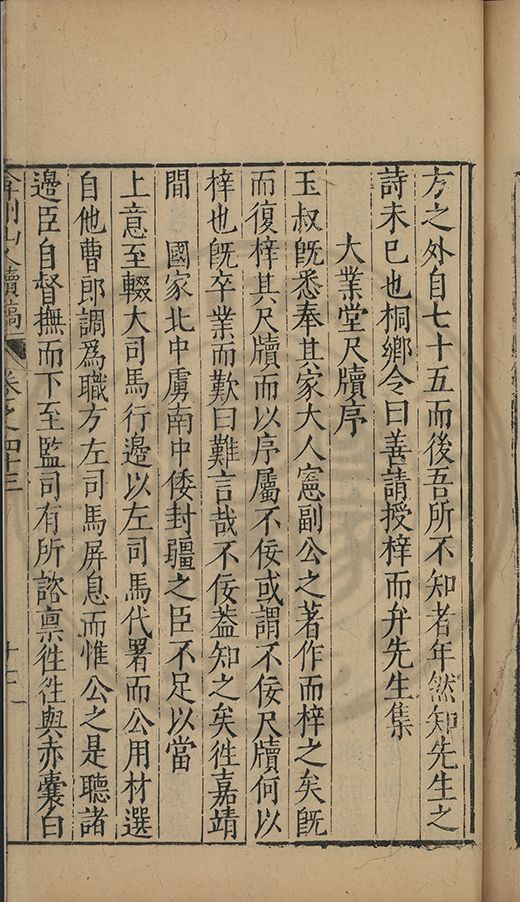 方之外自七十五而後吾所不知者年然知先生之
詩未已也桐鄉令曰善請授梓而弁先生集
大業堂尺牘序
玉叔既悉奉其家大人憲副公之著作而梓之矣既
而復梓其尺牘而以序屬不佞或謂不佞尺牘何以
梓也既卒業而歎曰難言哉不佞葢知之矣徃嘉靖
間 國家北中虜南中倭封疆之臣不足以當
上意至輟大司馬行邊以左司馬代署而公用材選
自他曹郎調爲職方左司馬屏息而惟公之是聽諸
邊臣自督撫而下至監司有所諮禀徃徃與赤囊白
弇州山人續稿 卷之四十三 十七